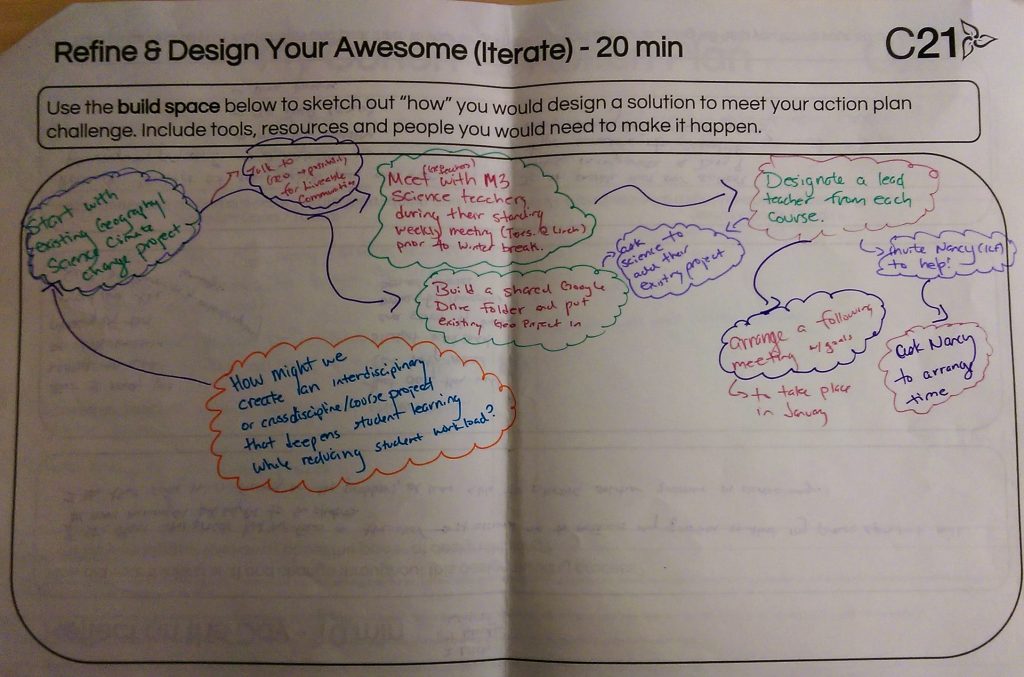 Refine & Design Your Awesome (Iterate) - 20 min
C21
Use the build space below to sketch out "how" you would design a solution to meet your action plan
challenge. Include tools, resources and people you would need to make it happen.
Start with
existing Geography/
Science Climate
change project
Talk to
GEO → possibility
for Liveable
Communities
Meet with M3
Science teachers
during their standing
weekly meeting (Tues. @ Lunch)
prior to Winter break.
Build a shared Google
Drive Folder and put
existing Geo Project in
Ask
science to
add their
existing project
Designate a lead
teacher from each
course.
Invite Nancy
to help!
Ask Nancy
to arrange
time
arrange a following
meeting w/ goals
to take place
in January
How might we
create an interdisciplinary
or crossdiscipline/course project
that deepens student learning
while reducing student workload?